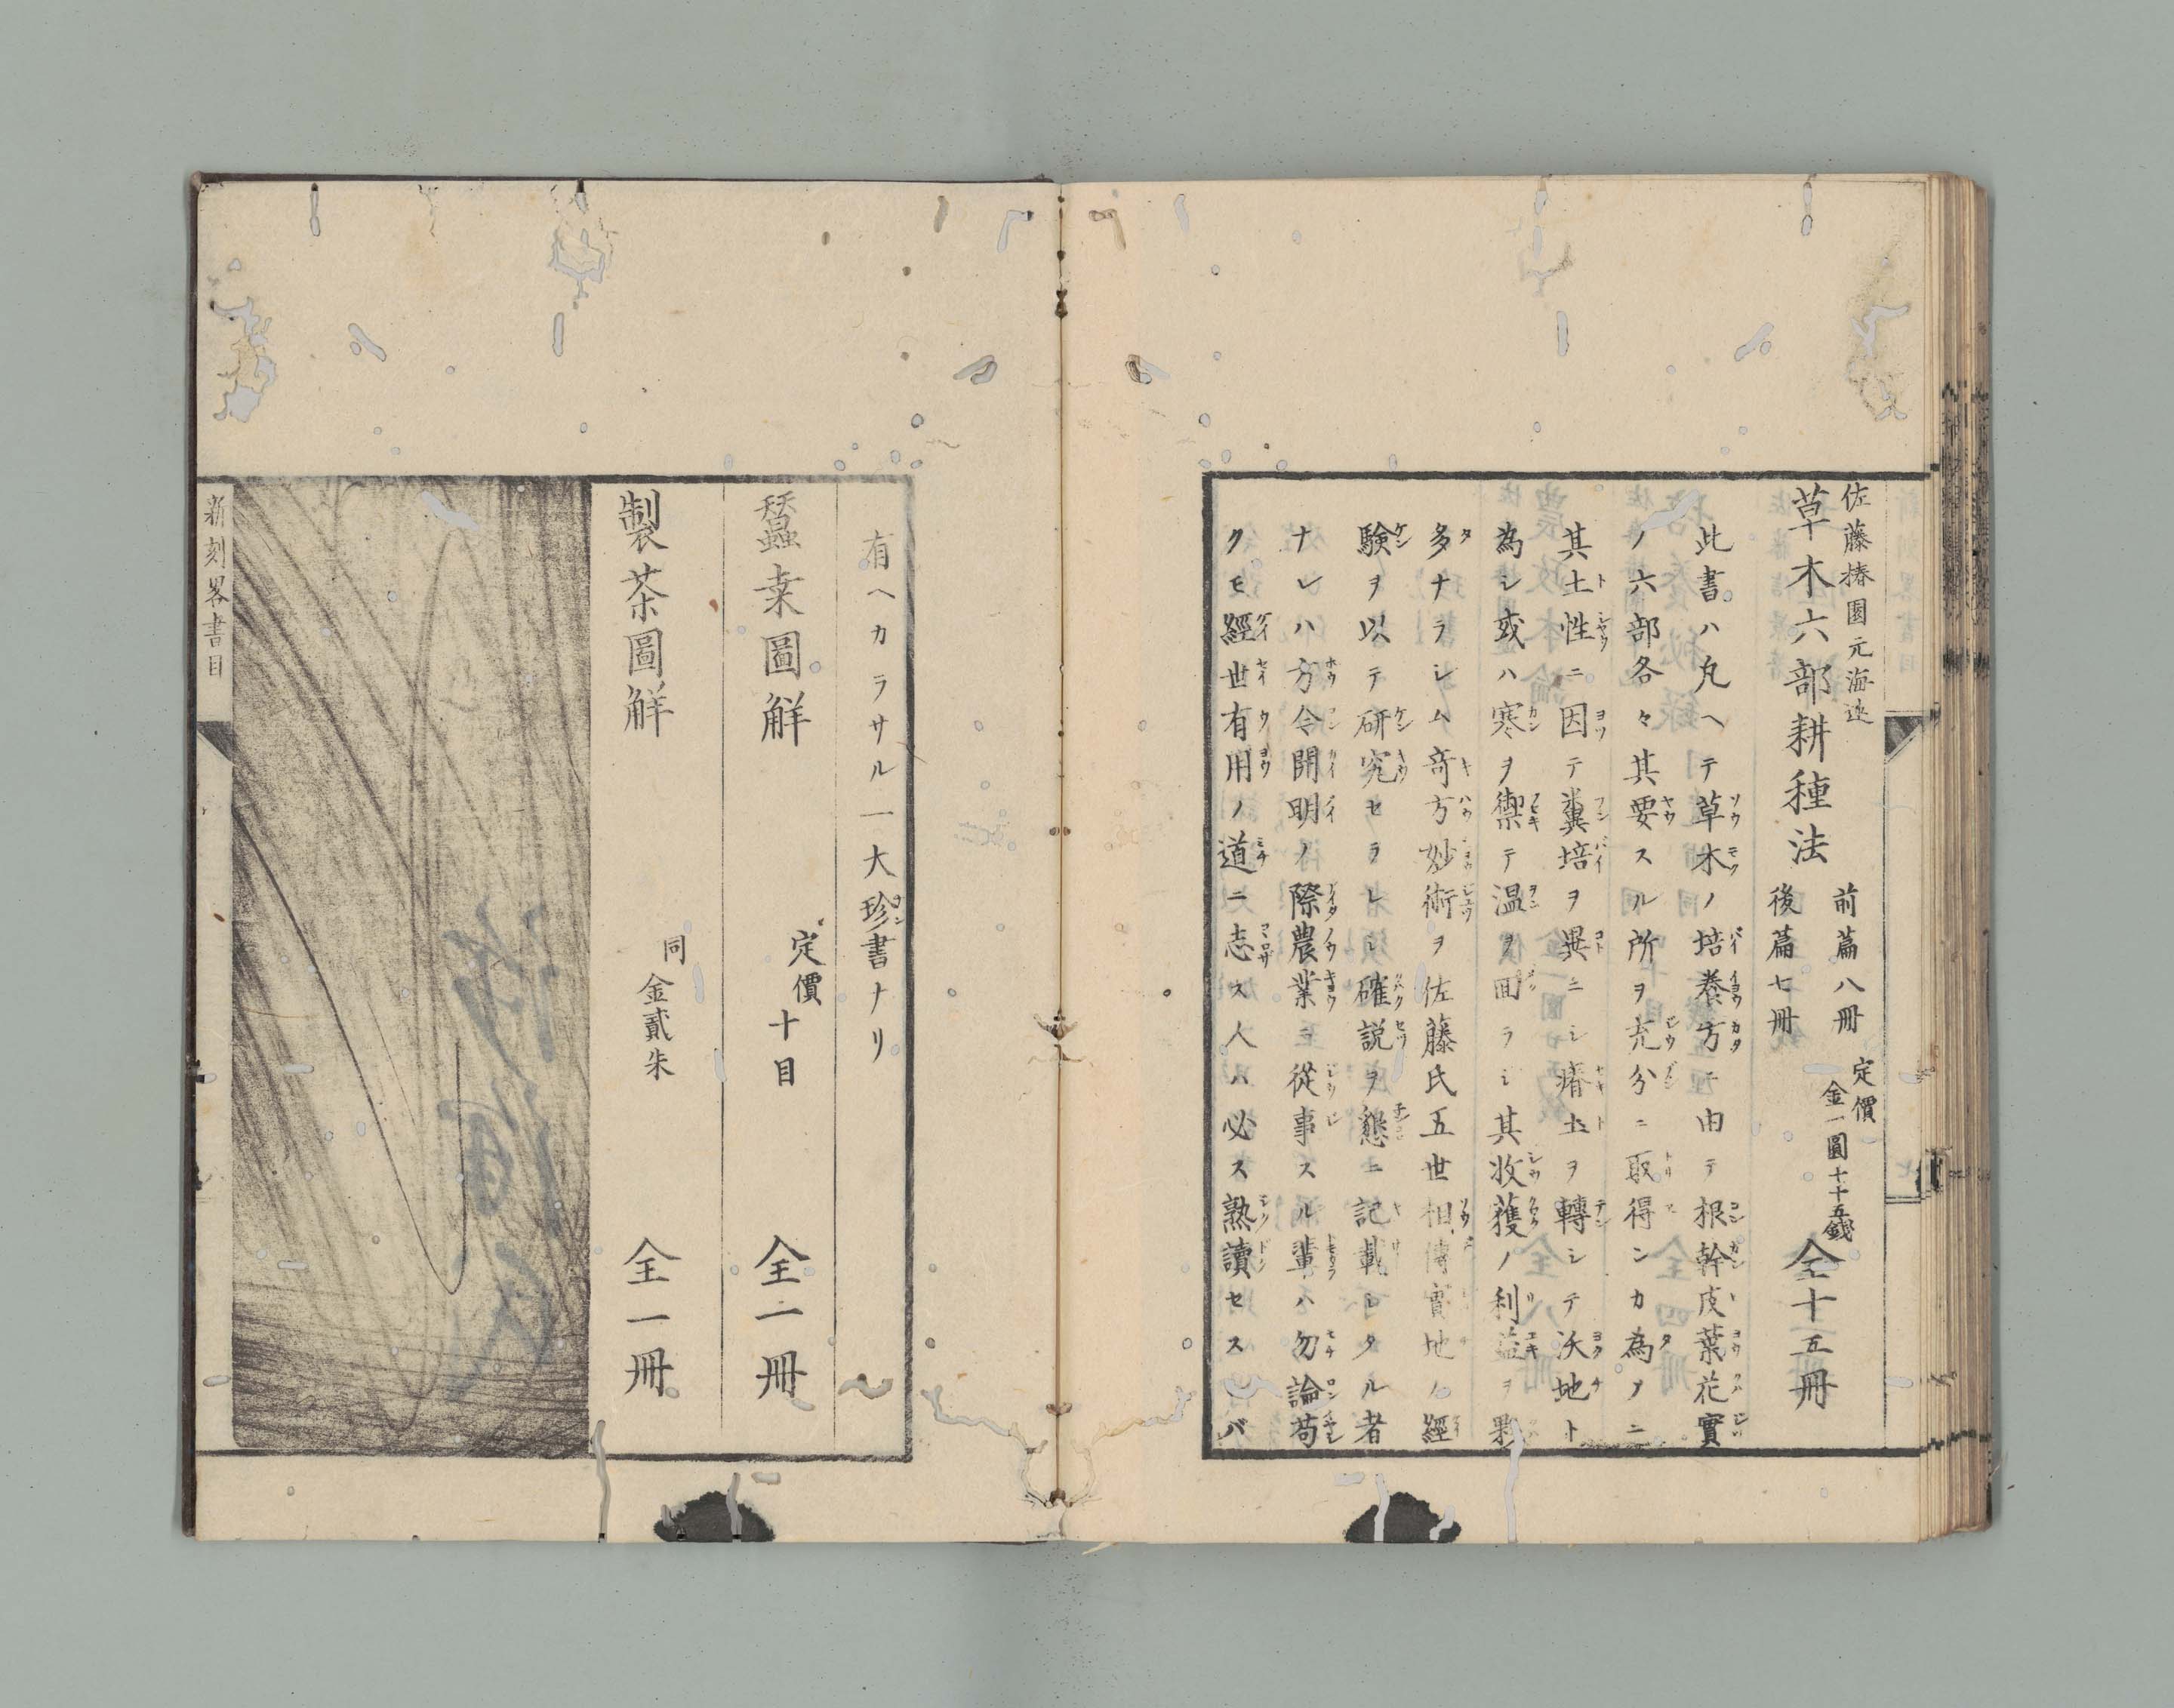 佐藤椿園元海述
草木六部耕種法
前篇八冊
後篇七冊
定價
金一圓
十五錢
全十五冊
此書ハ凡ヘテ草木ノ培養方ニ由テ根幹皮葉花實
ノ六部各々其要スル所ヲ充分ニ取得ンカ為メニ
其土性ニ因テ糞培ヲ異ニシ瘠土ヲ轉シテ沃地ト
為シ或ハ寒ヲ禦テ温ヲ回ラシ其收獲ノ利益ヲ夥
多ナラシム竒方妙術ヲ佐藤氏五世相傳實地ノ經
驗ヲ以テ研究セラレシ確説ヲ懇ニ記載シタル者
ナレハ方今開明ノ際農業ニ從事スル輩ハ勿論苟
クモ經世有用ノ道ニ志ス人ハ必ス熟讀セスンバ
有ヘカラサル一大珍書ナリ
蠶桒圖解
定價
十目
全二冊
製茶圖解
同
金貳朱
全一冊
新刻畧書目